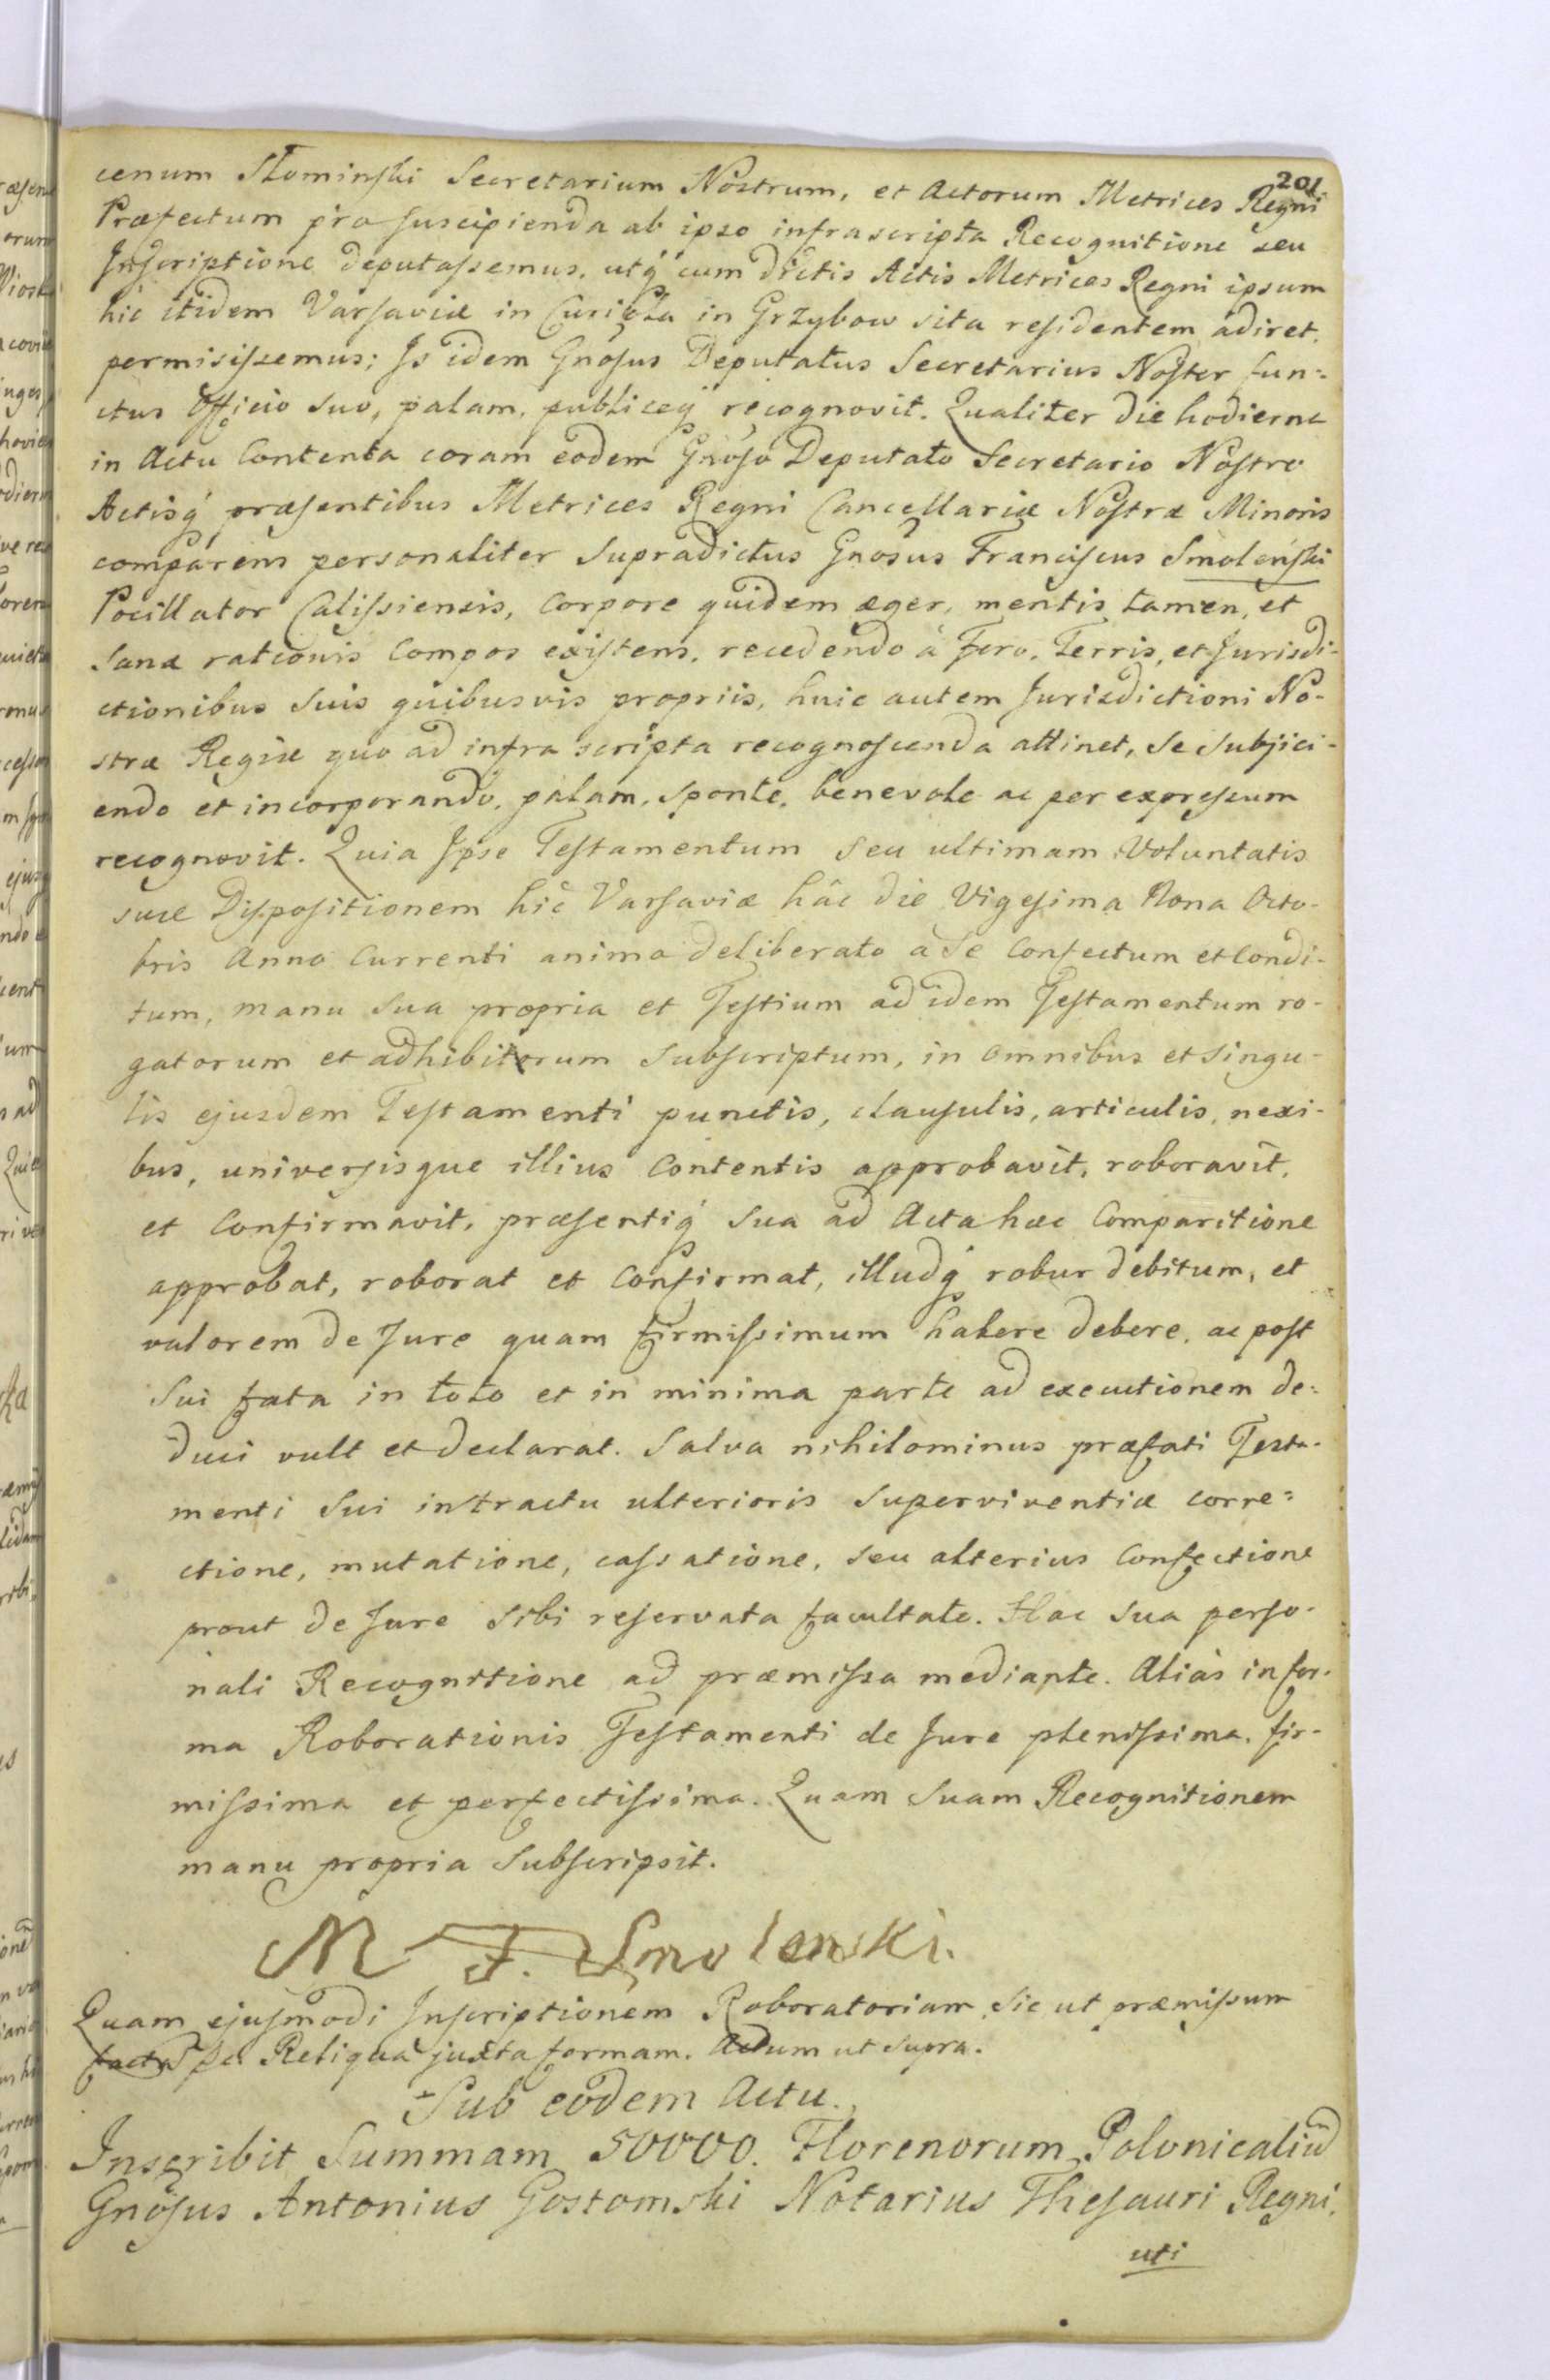 201
cenum Słominski Secretarium Nostrum, et Actorum Metrices Regni
Præfectum pro suscipienda ab ipso infrascripta Recognitione seu
Inscriptione deputassemus, utq́ cum dictis Actis Metrices Regni ipsum
hic itidem Varsaviæ in Curiola in Grzybow sita residentem adiret,
permisissemus; Is idem Gnosus Deputatus Secretarius Noster fun=
ctus Officio suo, palam, publiceq́ recognovit. Qualiter die hodierna
in Actu Contenta coram eodem Gnoso Deputato Secretario Nostro
Actisq́ præsentibus Metrices Regni Cancellariæ Nostræ Minoris
comparens personaliter Supradictus Gnosus Franciscus Smoleński
Pocillator Calissiensis, Corpore quidem æger, mentis tamen, et
Sanæ rationis Compos existens, recedendo à Foro, Terris, et Jurisdi-
ctionibus Suis quibusvis propriis, huic autem Jurisdictioni No-
stræ Regiæ quo ad infra scripta recognoscenda attinet, Se Subjici-
endo et incorporando, palam, sponte, benevole ac per expressum
recognovit. Quia Ipse Testamentum Seu ultimam Voluntatis
suæ Dispositionem hic Varsaviæ hâc die Vigesima Nona Octo-
bris Anno Currenti animo deliberato à Se Confectum et Condi-
tum, manu Sua propria et Testium ad idem Testamentum ro-
gatorum et adhibitorum Subscriptum, in omnibus et Singu-
lis ejusdem Testamenti punctis, clausulis, articulis, nexi-
bus, universisque illius Contentis approbavit, roboravit,
et Confirmavit, præsentiq́ Sua ad Acta hæc Comparitione
approbat, roborat et Confirmat, illudq́ robur debitum, et
valorem de Jure quam firmissimum habere debere, ac post
Sui fata in toto et in minima parte ad executionem de=
duci vult et declarat. Salva nihilominus præfati Testa-
menti Sui in tractu ulterioris Superviventiæ corre=
ctione, mutatione, cassatione, seu alterius Confectione
prout de Jure Sibi reservata facultate. Hac Sua perso-
nali Recognitione ad præmissa mediante. Aliàs in for-
ma Roborationis Testamenti de Jure plenissima, fir-
missima et perfectissima. Quam Suam Recognitionem
manu propria Subscripsit.
M F. Smolenski.
Quam ejusmodi Inscriptionem Roboratoriam, Sic ut præmissum
Reliqua juxta formam. Actum ut Supra.
Sub eodem Actu.
Inscribit Summam 50000. Florenorum Polonicaliũ
Gnosus Antonius Gostomski Notarius Thesauri Regni.
uti